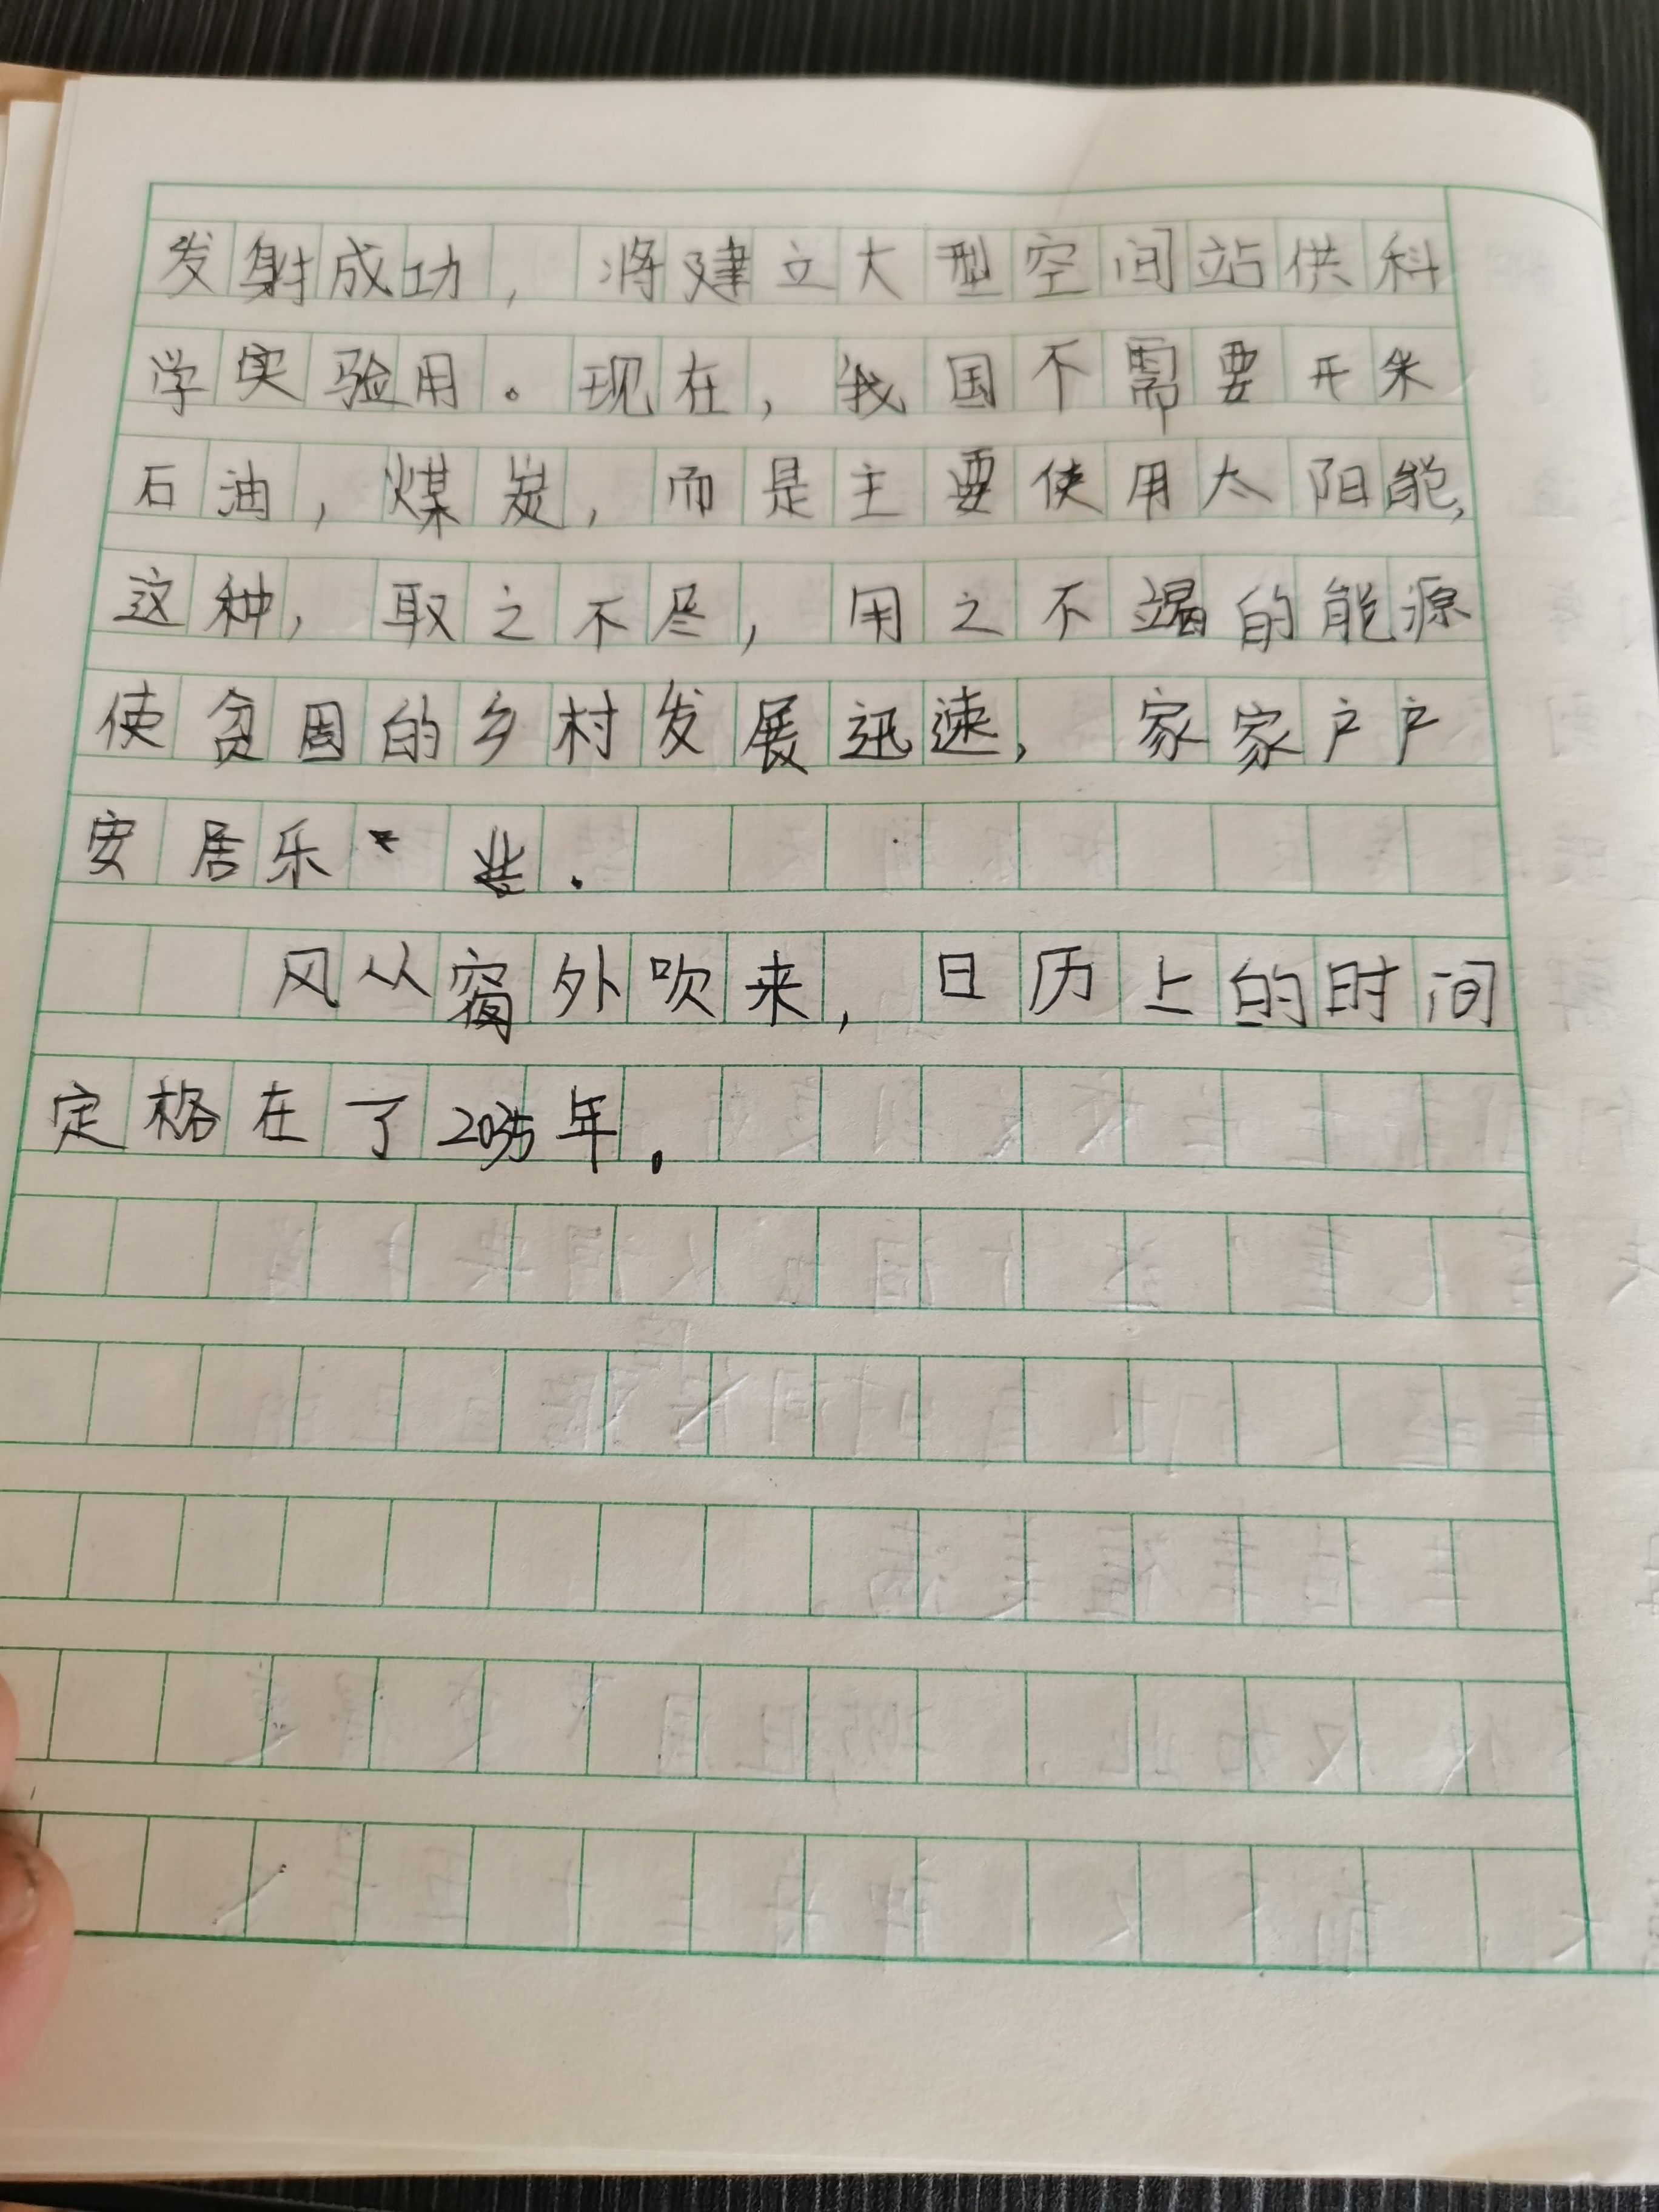 发射成功，将建立大型空间站供科
学实验用。现在，我国不需要开采
石油，煤炭，而是主要使用太阳能，
这种，取之不尽，用之不竭的能源
使贫困的乡村发展迅速，家家户户
安居乐业.
风从窗外吹来，日历上的时间
定格在了2035年.